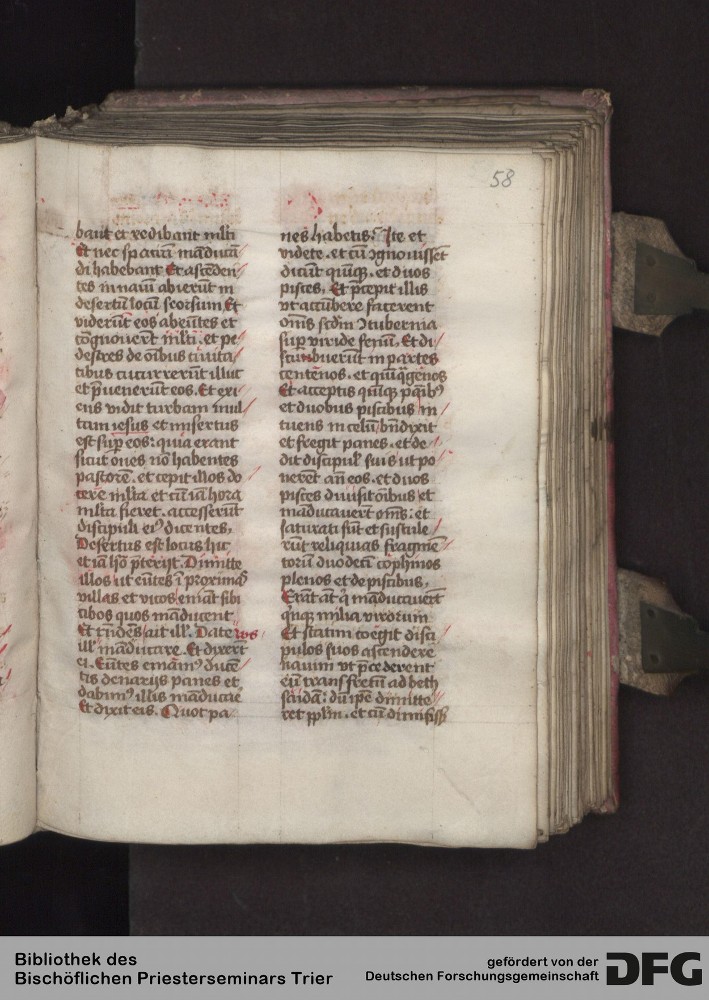 58
bant et redibant mlti
Et nec spaciū māducā
di habebant Et ascēden
tes in nauī abierūt in
desertū locū seorsum Et
viderūt eos abeūtes et
cōgnouerūt mlti. et pe
destres de oībus ciuita
tibus cucurrerūt illuc
et p̄uenerūt eos. Et exi
ens vidit turbam mul
tam iesus et misertus
est sup̄ eos: quia erant
sicut oues nō habentes
pastorē. et cepit illos do
cere mlta et cū iā hora
mlta fieret. accesserūt
discipuli eiꝰ dicentes,
Desertus est locus hic
et iā hō p̄terijt. Dimitte
illos ut eūtes ī proximas
villas et vicos emāt sibi
cibos quos māducent
Et rn̄dēs ait ill'. Date vos
ill' māducare. Et dixerūt
ei. Eūtes emamꝰ ducē
tis denarijs panes et
dabimꝰ illis māducare
Et dixit eis. Quot pa
nes habetis? Ite et
videte. et cū ꝯgnouissēt
dicūt quīqꝫ. et duos
pisces, Et p̄cepit illis
vt accūbere facerent
omīs scdm ꝯtubernia
sup̄ viride fenū, Et di
scūbuerūt in partes
centenos. et quīqͣgenos
Et acceptis quīqꝫ paībꝰ
et duobus piscibus in
tuens in celū bn̄dixit
et fregit panes. et de
dit discipul' suis ut po
nerēt an̄ eos. et duos
pisces diuisit oībus et
māducauerūt om̄s: et
saturati sūt et sustule
rūt reliquias fragmē
torū duodecī cophinos
plenos et de piscibus,
Erāt aūt q̄ māducauerūt
qͥnqꝫ milia virorum
Et statim coegit disci
pulos suos ascendere
nauim vt p̄cederent
eū trans fretū ad beth
saidā: dū ip̄e dimitte
ret pplm. et cū dimisiss
Bibliothek des
Bischöflichen Priesterseminars Trier
gefördert von der
Deutschen Forschungsgemeinschaft
DFG